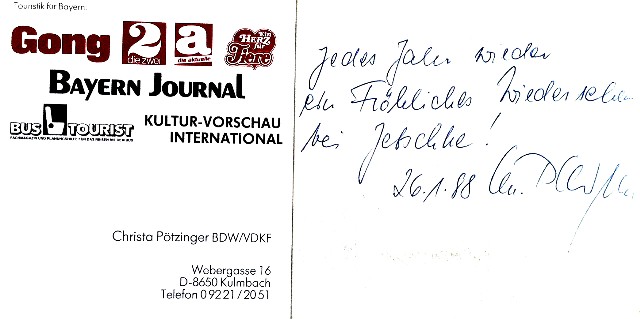 Touristik für Bayern.
Gong
2
die zwei
a
die aktuelle
Ein
HERZ
für
Tiere
BAYERN JOURNAL
BUS TOURIST
KULTUR-VORSCHAU
INTERNATIONAL
Christa Pötzinger BDW/VDKF
Webergasse 16
D-8650 Kulmbach
Telefon 0 92 21 / 20 51
Jedes Jahr wieder
ein Fröhliches Wiedersehen
bei Jetschke!
26.1.88